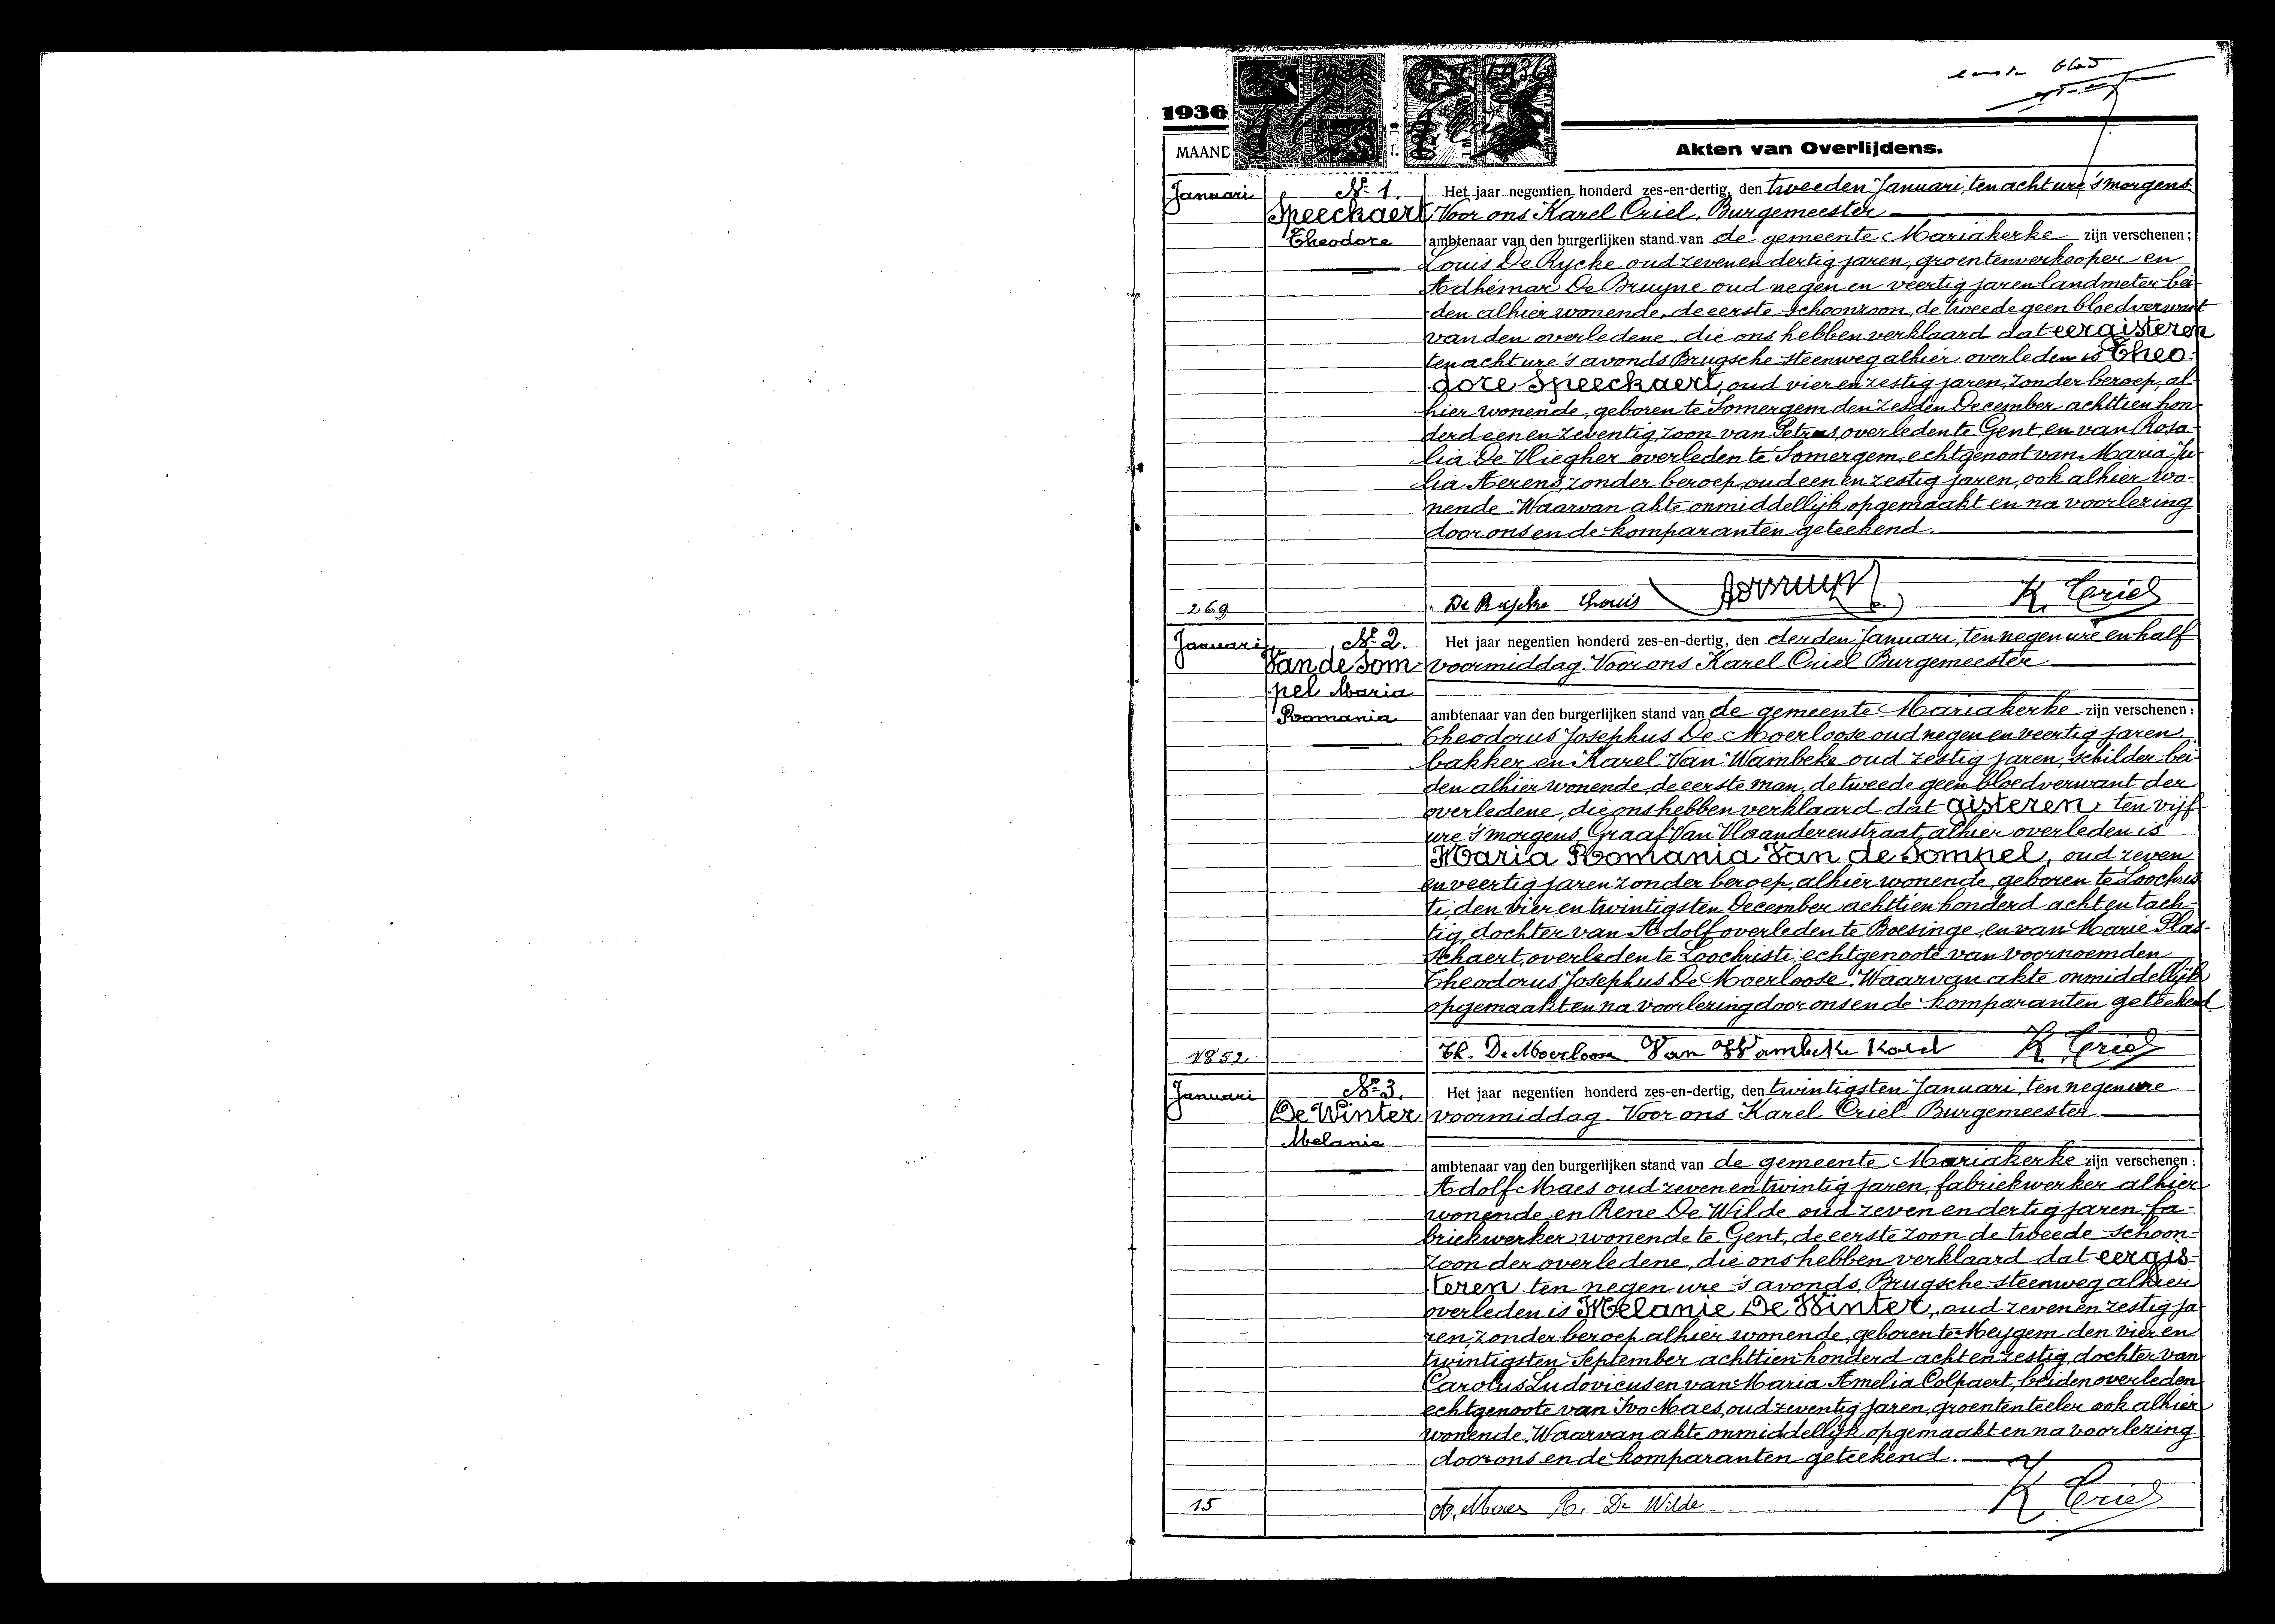 eerste blad
1936
MAAND
Akten van Overlijdens.
Januari
Nr 1.
Speeckaert
Theodore
Het jaar negentien honderd zes-en-dertig, den tweeden Januari, ten acht ure 's morgens
Voor ons Karel Criel, Burgemeester
ambtenaar van den burgerlijken stand van de gemeente Mariakerke zijn verschenen:
Louis De Rycke oud zeven en dertig jaren, groentenverkooper en
Adhémar De Bruyne oud negen en veertig jaren landmeter bei-
den alhier wonende, de eerste schoonzoon, de tweede geen bloedverwant
van den overledene, die ons hebben verklaard dat eergisteren
ten acht ure 's avonds Brugsche steenweg alhier overleden is Theo-
dore Speeckaert, oud vier en zestig jaren, zonder beroep, al-
hier wonende, geboren te Somergem den zesden December achttien hon-
derd een en zeventig, zoon van Petrus, overleden te Gent, en van Rosa-
lia De Vliegher overleden te Somergem, echtgenoot van Maria Ju-
lia Aerens, zonder beroep, oud een en zestig jaren, ook alhier wo-
nende. Waarvan akte onmiddellijk opgemaakt en na voorlezing
door ons en de komparanten geteekend.
269
De Rycke Louis K. Criel
Januari
Nr 2.
Van de Som-
pel Maria
Romania
Het jaar negentien honderd zes-en-dertig, den derden Januari, ten negen ure en half
voormiddag. Voor ons Karel Criel Burgemeester
ambtenaar van den burgerlijken stand van de gemeente Mariakerke zijn verschenen:
Theodorus Josephus De Moerloose oud negen en veertig jaren,
bakker en Karel Van Wambeke oud zestig jaren, schilder bei-
den alhier wonende, de eerste man, de tweede geen bloedverwant der
overledene, die ons hebben verklaard dat gisteren ten vijf
ure 's morgens, Graaf Van Vlaanderenstraat, alhier overleden is
Maria Romania Van de Sompel, oud zeven
en veertig jaren zonder beroep, alhier wonende, geboren te Loochris-
ti, den vier en twintigsten December achttien honderd acht en tach-
tig, dochter van Adolf overleden te Boesinge, en van Marie Plas-
schaert, overleden te Loochristi, echtgenoote van voornoemden
Theodorus Josephus De Moerloose. Waarvan akte onmiddellijk
opgemaakt en na voorlezing door ons en de komparanten geteekend
1852.
Th. De Moerloose Van Wambeke Karel K. Criel
Januari
Nr 3.
De Winter
Melanie
Het jaar negentien honderd zes-en-dertig, den twintigsten Januari, ten negen ure
voormiddag. Voor ons Karel Criel Burgemeester
ambtenaar van den burgerlijken stand van de gemeente Mariakerke zijn verschenen:
Adolf Maes oud zeven en twintig jaren, fabriekwerker alhier
wonende en Rene De Wilde oud zeven en dertig jaren, fa-
briekwerker, wonende te Gent, de eerste zoon de tweede schoon-
zoon der overledene, die ons hebben verklaard dat eergis-
teren ten negen ure 's avonds, Brugsche steenweg alhier
overleden is Melanie De Winter, oud zeven en zestig ja-
ren, zonder beroep alhier wonende, geboren te Meygem den vier en
twintigsten September achttien honderd acht en zestig, dochter van
Carolus Ludovicus en van Maria Amelia Colpaert, beiden overleden
echtgenoote van Ivo Maes, oud zeventig jaren, groententeeler ook alhier
wonende. Waarvan akte onmiddellijk opgemaakt en na voorlezing
door ons en de komparanten geteekend.
15
A. Maes R. De Wilde K. Criel